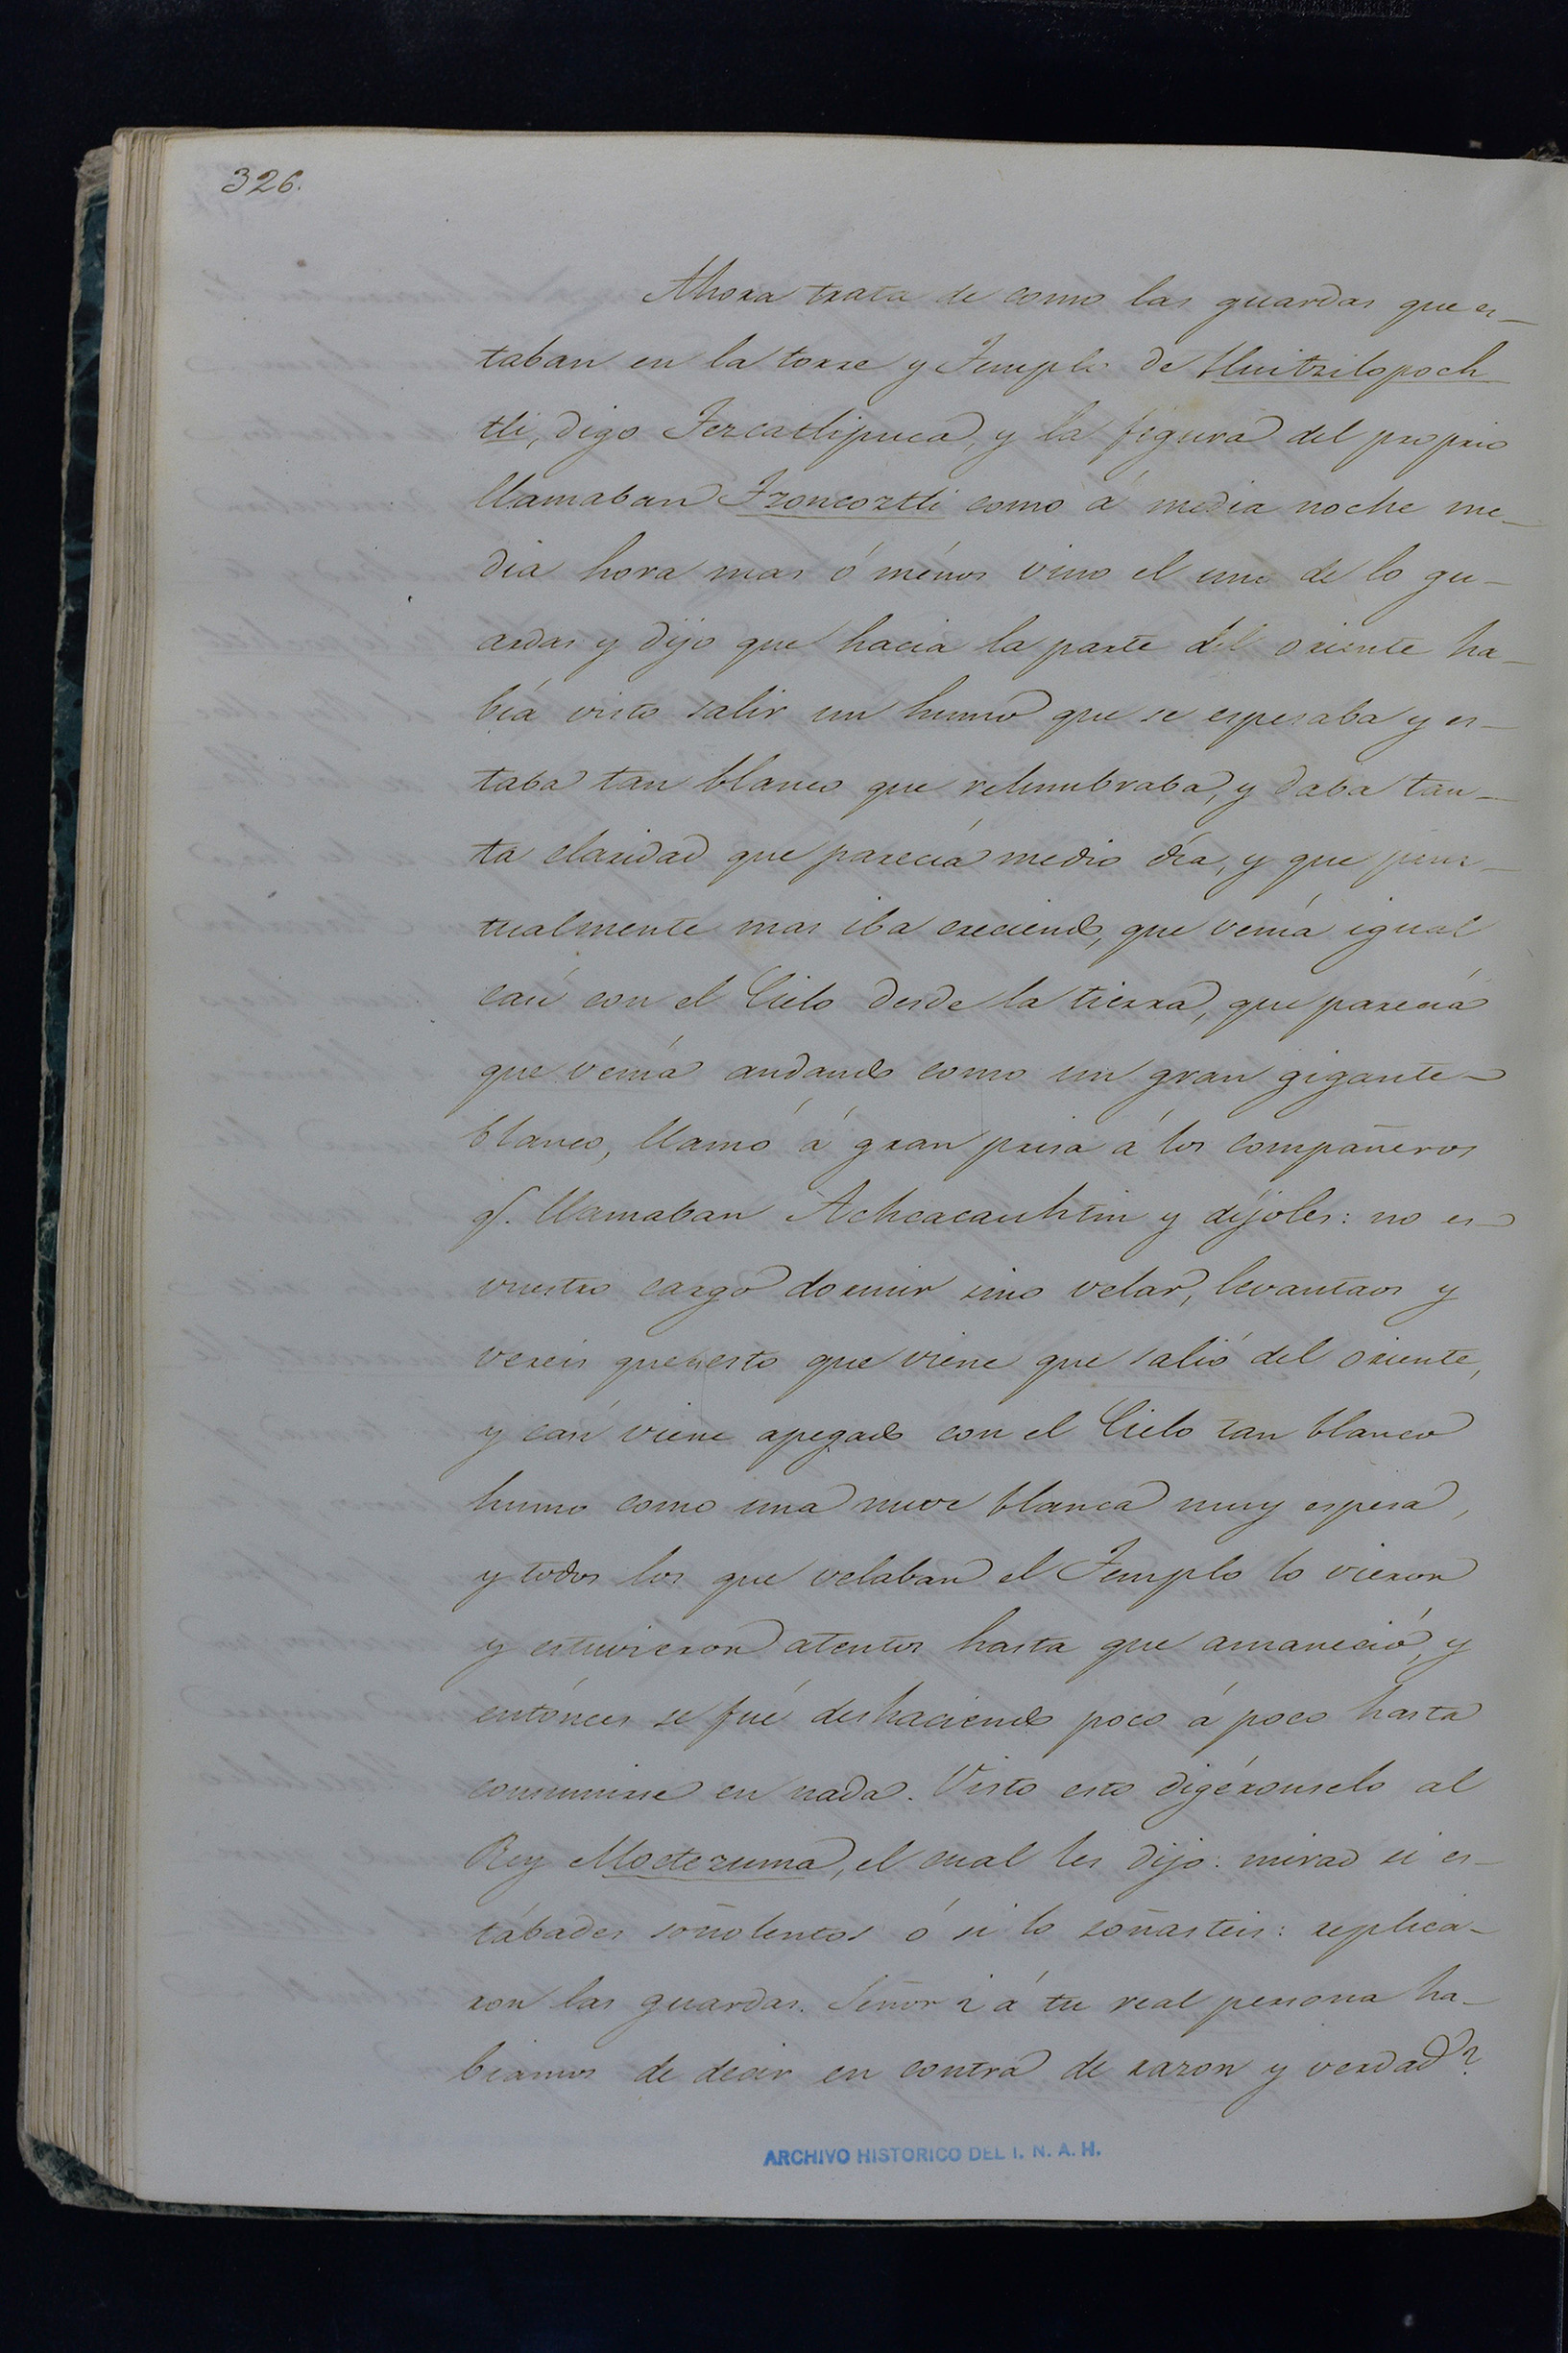 326.
Ahora trata de como las guardas que es-
taban en la torre y Templo de Huitzilopoch
tli, digo Tezcatlipuca, y la figura del proprio
llamaban Tzoncoztli como á media noche me-
dia hora mas ó ménos vino el uno de lo gu-
ardas y dijo que hacia la parte del oriente ha-
bía visto salir un humo que se espesaba y es-
taba tan blanco que relumbraba, y daba tan-
ta claridad que parecía medio día, y que
tualmente mas iba creciendo, que venía igual
casi con el Cielo desde la tierra, que parecía
que venía andando como un gran gigante-
blanco, llamó á gran prisa á los compañeros
q.e llamaban Achcacauhtin y díjoles: no es
vuestro cargo dormir sino velar, levantaos y
vereis que es esto que viene que salió del oriente,
y casi viene apegado con el Cielo tan blanco
humo como una nuve blanca muy espesa,
y todos los que velaban el Templo lo vieron
y estuvieron atentos hasta que amaneció, y
entónces se fué deshaciendo poco á poco hasta
consumirse en nada. Visto esto digéronselo al
Rey Moctezuma, el cual les dijo: mirad si es-
tábades soñolentos ó si lo soñasteis: replica-
ron las guardas. Señor ¿á tu real persona ha-
biamos de decir en contra de razon y verdad?
ARCHIVO HISTORICO DEL I. N. A. H.